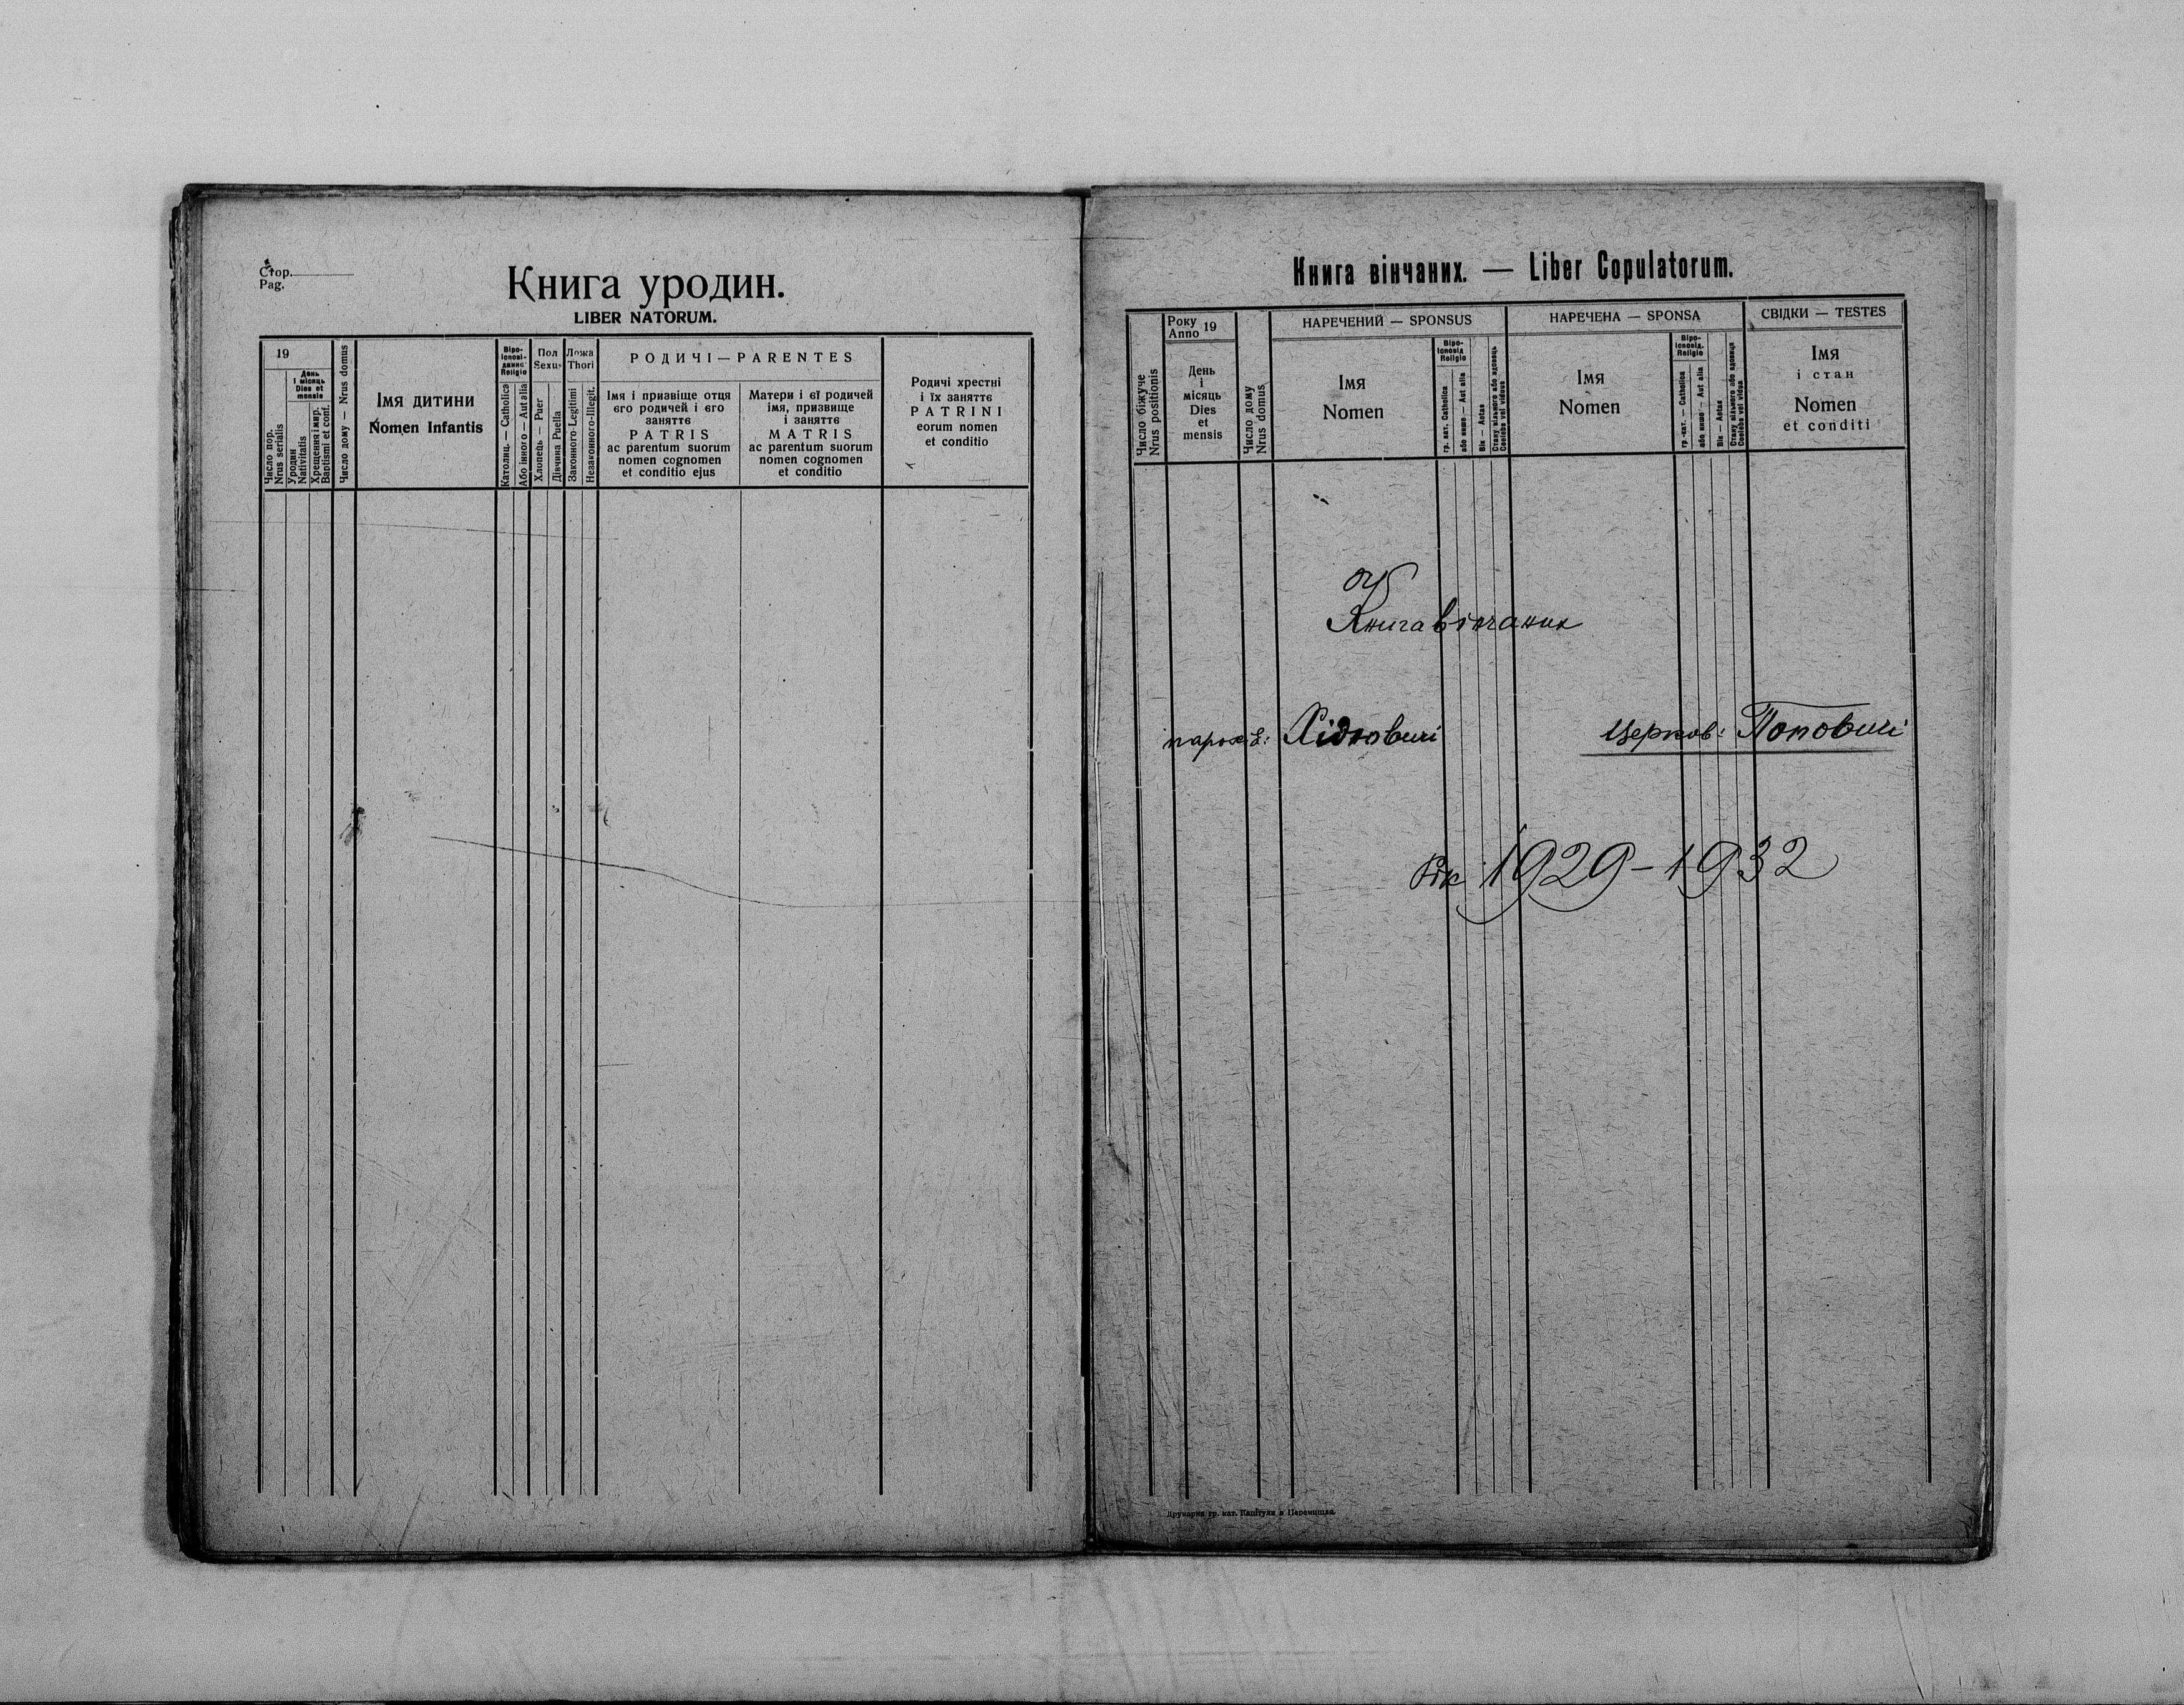 Стор.
Pag.
Книга уродин.
LIBER NATORUM.
19
День
і місяць
Dies et
mensis
Число пор.
Nrus serialis
Уродин
Nativitatis
Хрещення і мир.
Baptismi et conf.
Число дому — Nrus domus
Імя дитини
Nomen Infantis
Віро-
ісповідання
Religio
Католиц. — Catholica
Або інного — Aut alia
Пол
Sexus
Хлопець — Puer
Дівчина Puella
Ложа
Thori
Законного-Legitimi
Незаконного-Illegit.
РОДИЧІ — PARENTES
Імя і призвіще отця
єго родичей і єго
заняттє
PATRIS
ac parentum suorum
nomen cognomen
et conditio ejus
Матери і єї родичей
імя, призвище
і занятте
MATRIS
ac parentum suorum
nomen cognomen
et conditio
Родичі хрестні
і їх заняттє
PATRINI
eorum nomen
et conditio
Книга вінчаних. — Liber Copulatorum.
Число біжуче
Nrus positionis
Року
Anno 19
День
і
місяць
Dies
et
mensis
Число дому
Nrus domus
НАРЕЧЕНИЙ — SPONSUS
Імя
Nomen
Віро-
ісповід.
Religio
гр. кат. Catholica
або инше — Aut alia
Вік — Aetas
Стану вільного або вдовець
Coelebs vel viduus
НАРЕЧЕНА — SPONSA
Імя
Nomen
Віро-
ісповід.
Religio
гр.-кат. — Catholica
або инше — Aut alia
Вік — Aetas
Стану вільного або вдовиця
Coelebs vel vidua
СВІДКИ — TESTES
Імя
і стан
Nomen
et conditi
Книга вінчаних
парохія: Хідновичі
Церков: Поповичі
Рік 1929 – 1932
Друкарня гр. кат. Капітули в Перемишли.